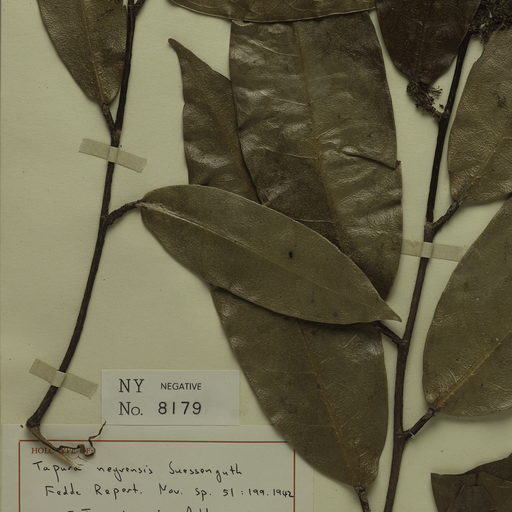 NY NEGATIVE
No. 8179
Tapura negrensis Suessenguth
Fedde Report. Nov. Sp. 51:199.1942